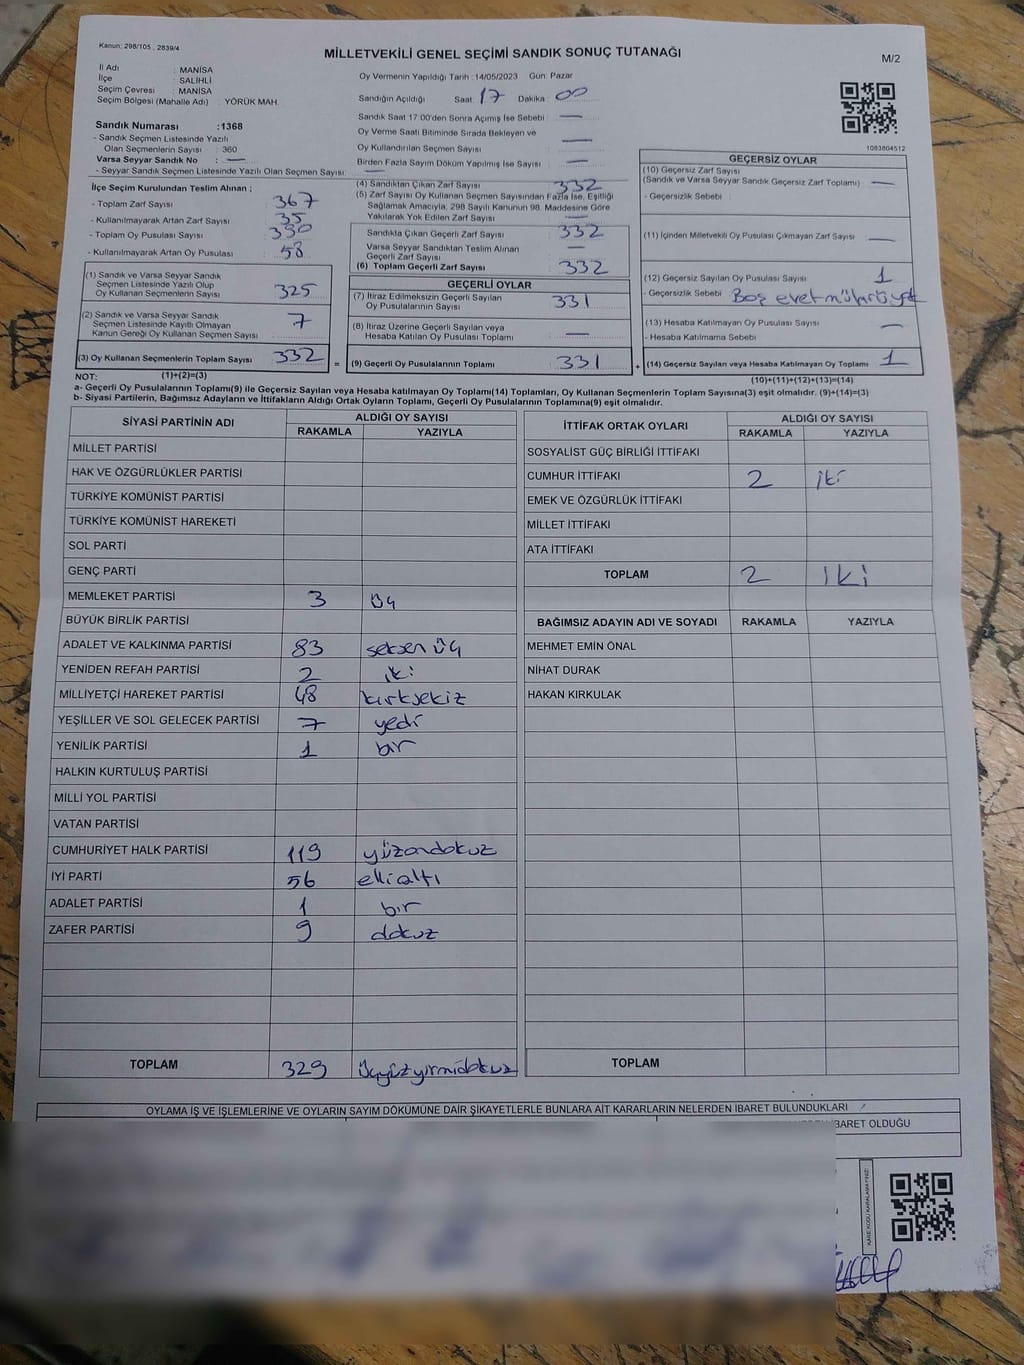 Kanun: 298/105 , 2839/4
MİLLETVEKİLİ GENEL SEÇİMİ SANDIK SONUÇ TUTANAĞI
M/2
İl Adı : MANİSA
İlçe : SALİHLİ
Seçim Çevresi : MANİSA
Seçim Bölgesi (Mahalle Adı) : YÖRÜK MAH.
Oy Vermenin Yapıldığı Tarih :14/05/2023 Gün: Pazar
Sandığın Açıldığı Saat: 17 Dakika: 00
Sandık Saat 17:00'den Sonra Açımış İse Sebebi : —
Oy Verme Saati Bitiminde Sırada Bekleyen ve
Oy Kullandırılan Seçmen Sayısı : —
Birden Fazla Sayım Döküm Yapılmış İse Sayısı : —
1083804512
Sandık Numarası :1368
- Sandık Seçmen Listesinde Yazılı
Olan Seçmenlerin Sayısı : 360
Varsa Seyyar Sandık No : —
- Seyyar Sandık Seçmen Listesinde Yazılı Olan Seçmen Sayısı: —
İlçe Seçim Kurulundan Teslim Alınan ;
- Toplam Zarf Sayısı : 367
- Kullanılmayarak Artan Zarf Sayısı : 35
- Toplam Oy Pusulası Sayısı :
- Kullanılmayarak Artan Oy Pusulası : 58
(1) Sandık ve Varsa Seyyar Sandık
Seçmen Listesinde Yazılı Olup
Oy Kullanan Seçmenlerin Sayısı : 325
(2) Sandık ve Varsa Seyyar Sandık
Seçmen Listesinde Kayıtlı Olmayan
Kanun Gereği Oy Kullanan Seçmen Sayısı : 7
(3) Oy Kullanan Seçmenlerin Toplam Sayısı : 332
(4) Sandıktan Çıkan Zarf Sayısı : 332
(5) Zarf Sayısı Oy Kullanan Seçmen Sayısından Fazla İse, Eşitliği
Sağlamak Amacıyla, 298 Sayılı Kanunun 98. Maddesine Göre
Yakılarak Yok Edilen Zarf Sayısı : —
Sandıkta Çıkan Geçerli Zarf Sayısı : 332
Varsa Seyyar Sandıktan Teslim Alınan
Geçerli Zarf Sayısı : —
(6) Toplam Geçerli Zarf Sayısı : 332
GEÇERLİ OYLAR
(7) İtiraz Edilmeksizin Geçerli Sayılan
Oy Pusulalarının Sayısı : 331
(8) İtiraz Üzerine Geçerli Sayılan veya
Hesaba Katılan Oy Pusulası Toplamı : —
= (9) Geçerli Oy Pusulalarının Toplamı : 331 +
GEÇERSİZ OYLAR
(10) Geçersiz Zarf Sayısı
(Sandık ve Varsa Seyyar Sandık Geçersiz Zarf Toplamı) : —
- Geçersizlik Sebebi :
(11) İçinden Milletvekili Oy Pusulası Çıkmayan Zarf Sayısı : —
(12) Geçersiz Sayılan Oy Pusulası Sayısı : 1
- Geçersizlik Sebebi : Boş evet mührü yok
(13) Hesaba Katılmayan Oy Pusulası Sayısı : —
- Hesaba Katılmama Sebebi :
(14) Geçersiz Sayılan veya Hesaba Katılmayan Oy Toplamı : 1
NOT: (1)+(2)=(3)
(10)+(11)+(12)+(13)=(14)
a- Geçerli Oy Pusulalarının Toplamı(9) ile Geçersiz Sayılan veya Hesaba katılmayan Oy Toplamı(14) Toplamları, Oy Kullanan Seçmenlerin Toplam Sayısına(3) eşit olmalıdır. (9)+(14)=(3)
b- Siyasi Partilerin, Bağımsız Adayların ve İttifakların Aldığı Ortak Oyların Toplamı, Geçerli Oy Pusulalarının Toplamına(9) eşit olmalıdır.
SİYASİ PARTİNİN ADI ALDIĞI OY SAYISI
RAKAMLA YAZIYLA
MİLLET PARTİSİ
HAK VE ÖZGÜRLÜKLER PARTİSİ
TÜRKİYE KOMÜNİST PARTİSİ
TÜRKİYE KOMÜNİST HAREKETİ
SOL PARTİ
GENÇ PARTİ
MEMLEKET PARTİSİ 3 üç
BÜYÜK BİRLİK PARTİSİ
ADALET VE KALKINMA PARTİSİ 83 seksen üç
YENİDEN REFAH PARTİSİ 2 iki
MİLLİYETÇİ HAREKET PARTİSİ 48 kırksekiz
YEŞİLLER VE SOL GELECEK PARTİSİ 7 yedi
YENİLİK PARTİSİ 1 bir
HALKIN KURTULUŞ PARTİSİ
MİLLİ YOL PARTİSİ
VATAN PARTİSİ
CUMHURİYET HALK PARTİSİ 119 yüzondokuz
İYİ PARTİ 56 ellialtı
ADALET PARTİSİ 1 bir
ZAFER PARTİSİ 9 dokuz
TOPLAM 329 üçyüzyirmidokuz
İTTİFAK ORTAK OYLARI ALDIĞI OY SAYISI
RAKAMLA YAZIYLA
SOSYALİST GÜÇ BİRLİĞİ İTTİFAKI
CUMHUR İTTİFAKI 2 iki
EMEK VE ÖZGÜRLÜK İTTİFAKI
MİLLET İTTİFAKI
ATA İTTİFAKI
TOPLAM 2 iki
BAĞIMSIZ ADAYIN ADI VE SOYADI RAKAMLA YAZIYLA
MEHMET EMİN ÖNAL
NİHAT DURAK
HAKAN KIRKULAK
TOPLAM
OYLAMA İŞ VE İŞLEMLERİNE VE OYLARIN SAYIM DÖKÜMÜNE DAİR ŞİKAYETLERLE BUNLARA AİT KARARLARIN NELERDEN İBARET BULUNDUKLARI
İBARET OLDUĞU